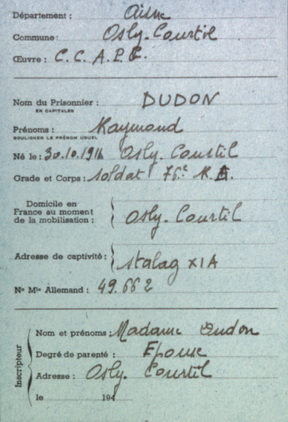 Département : Aisne
Commune : Osly-Courtil
Œuvre : C.C.A.P.G.
Nom du Prisonnier : DUDON
EN CAPITALES
Prénoms : Raymond
SOULIGNER LE PRÉNOM USUEL
Né le : 30.10.191 Osly. Courtil
Grade et Corps : Soldat
Domicile en
France au moment
de la mobilisation : Osly. Courtil
Adresse de captivité : Stalag XI A
No Mle Allemand : 49.662
Inscripteur
Nom et prénoms : Madame Dudon
Degré de parenté : Epouse
Adresse : Osly Courtil
le 194